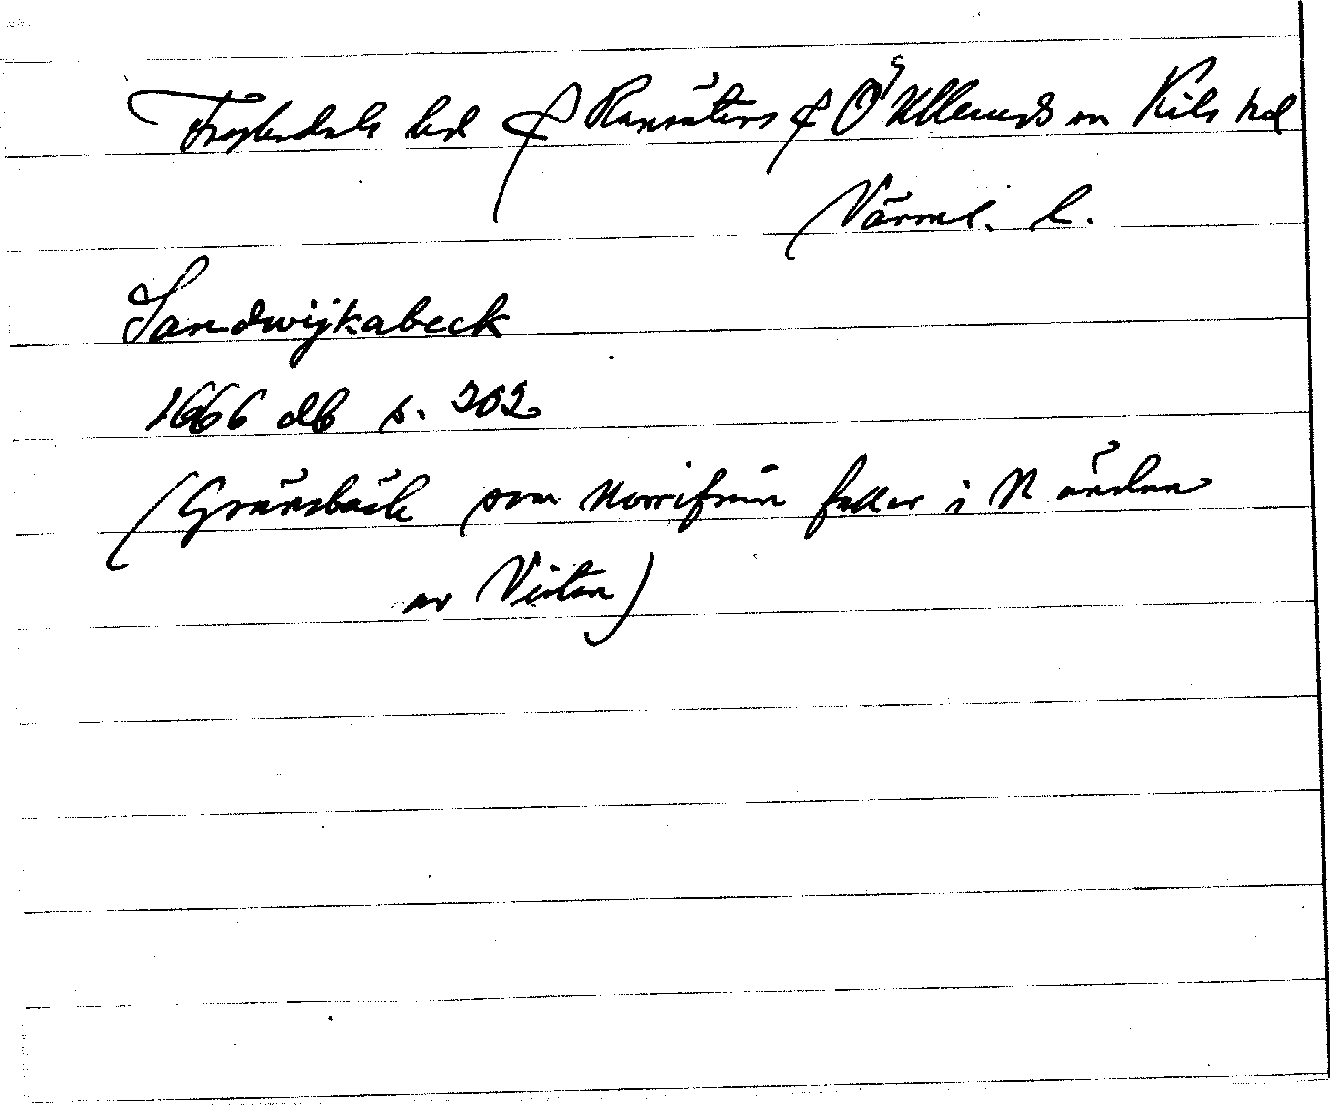 Fryksdals hd & Ransäters & Ö Ullerud sn Kils hd
Värml. l.
Sandwijkabeck
1666 db s. 202
(Gränsbäck som norrifrån faller i N ändan
av Visten)